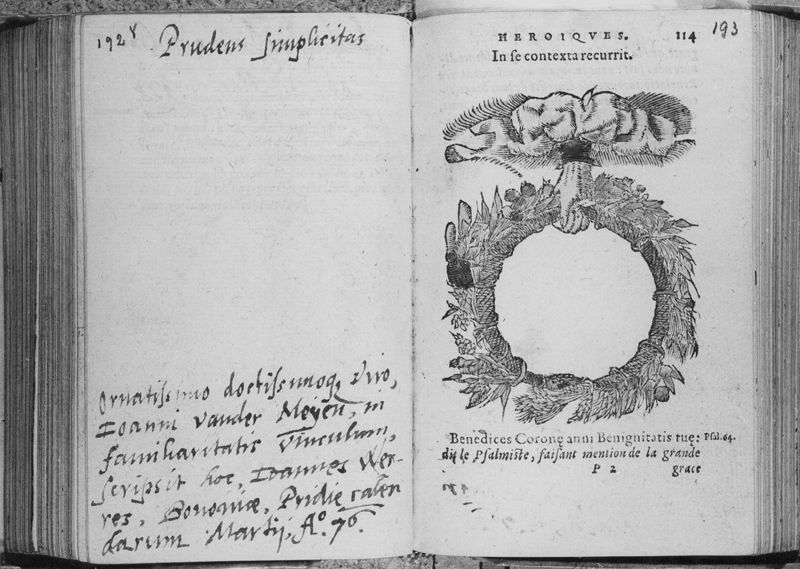 192v
Prudens simplicitas
Ornatissimo doctissimoq, viro,
Ioanni vander Meyen, in
familiaritatis vinculum,
scripsit hoc, Ioannes Wer-
res, Bononiæ, Pridie calen
darum Martij, Aº. 76.
HEROIQVES. 114
193
In se contexta recurrit.
Benedices Coronę anni Benignitatis tuę: Psal. 64.
dit le Psalmiste, faisant mention de la grande
P 2 grace